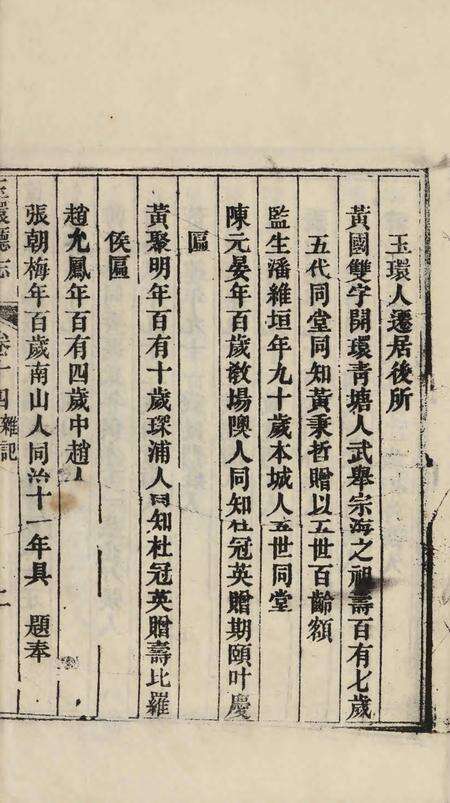 玉環人遷居後所
黃國雙字開環青塘人武舉宗海之祖壽百有七歲
五代同堂同知黃秉哲贈以五世百齡額
監生潘維垣年九十歲本城人五世同堂
陳元晏年百歲教場隩人同知杜冠英贈期頤叶慶
匾
黃聚明年百有十歲琛浦人同知杜冠英贈壽比羅
侯匾
趙允鳳年百有四歲中趙人
張朝梅年百歲南山人同治十一年具 題奉
玉環廳志 卷十四 雜記